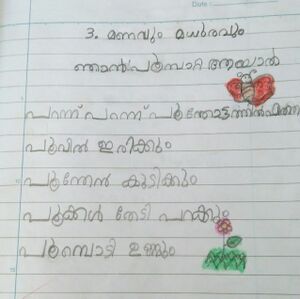 Date :
3. മണവും മധുരവും
ഞാൻ പൂമ്പാറ്റ ആയാൽ
പറന്ന് പറന്ന് പൂന്തോട്ടത്തിൽ
പൂവിൽ ഇരിക്കും
പൂന്തേൻ കുടിക്കും
പൂക്കൾ തേടി പറക്കും
പൂമ്പൊടി ഉണ്ണും